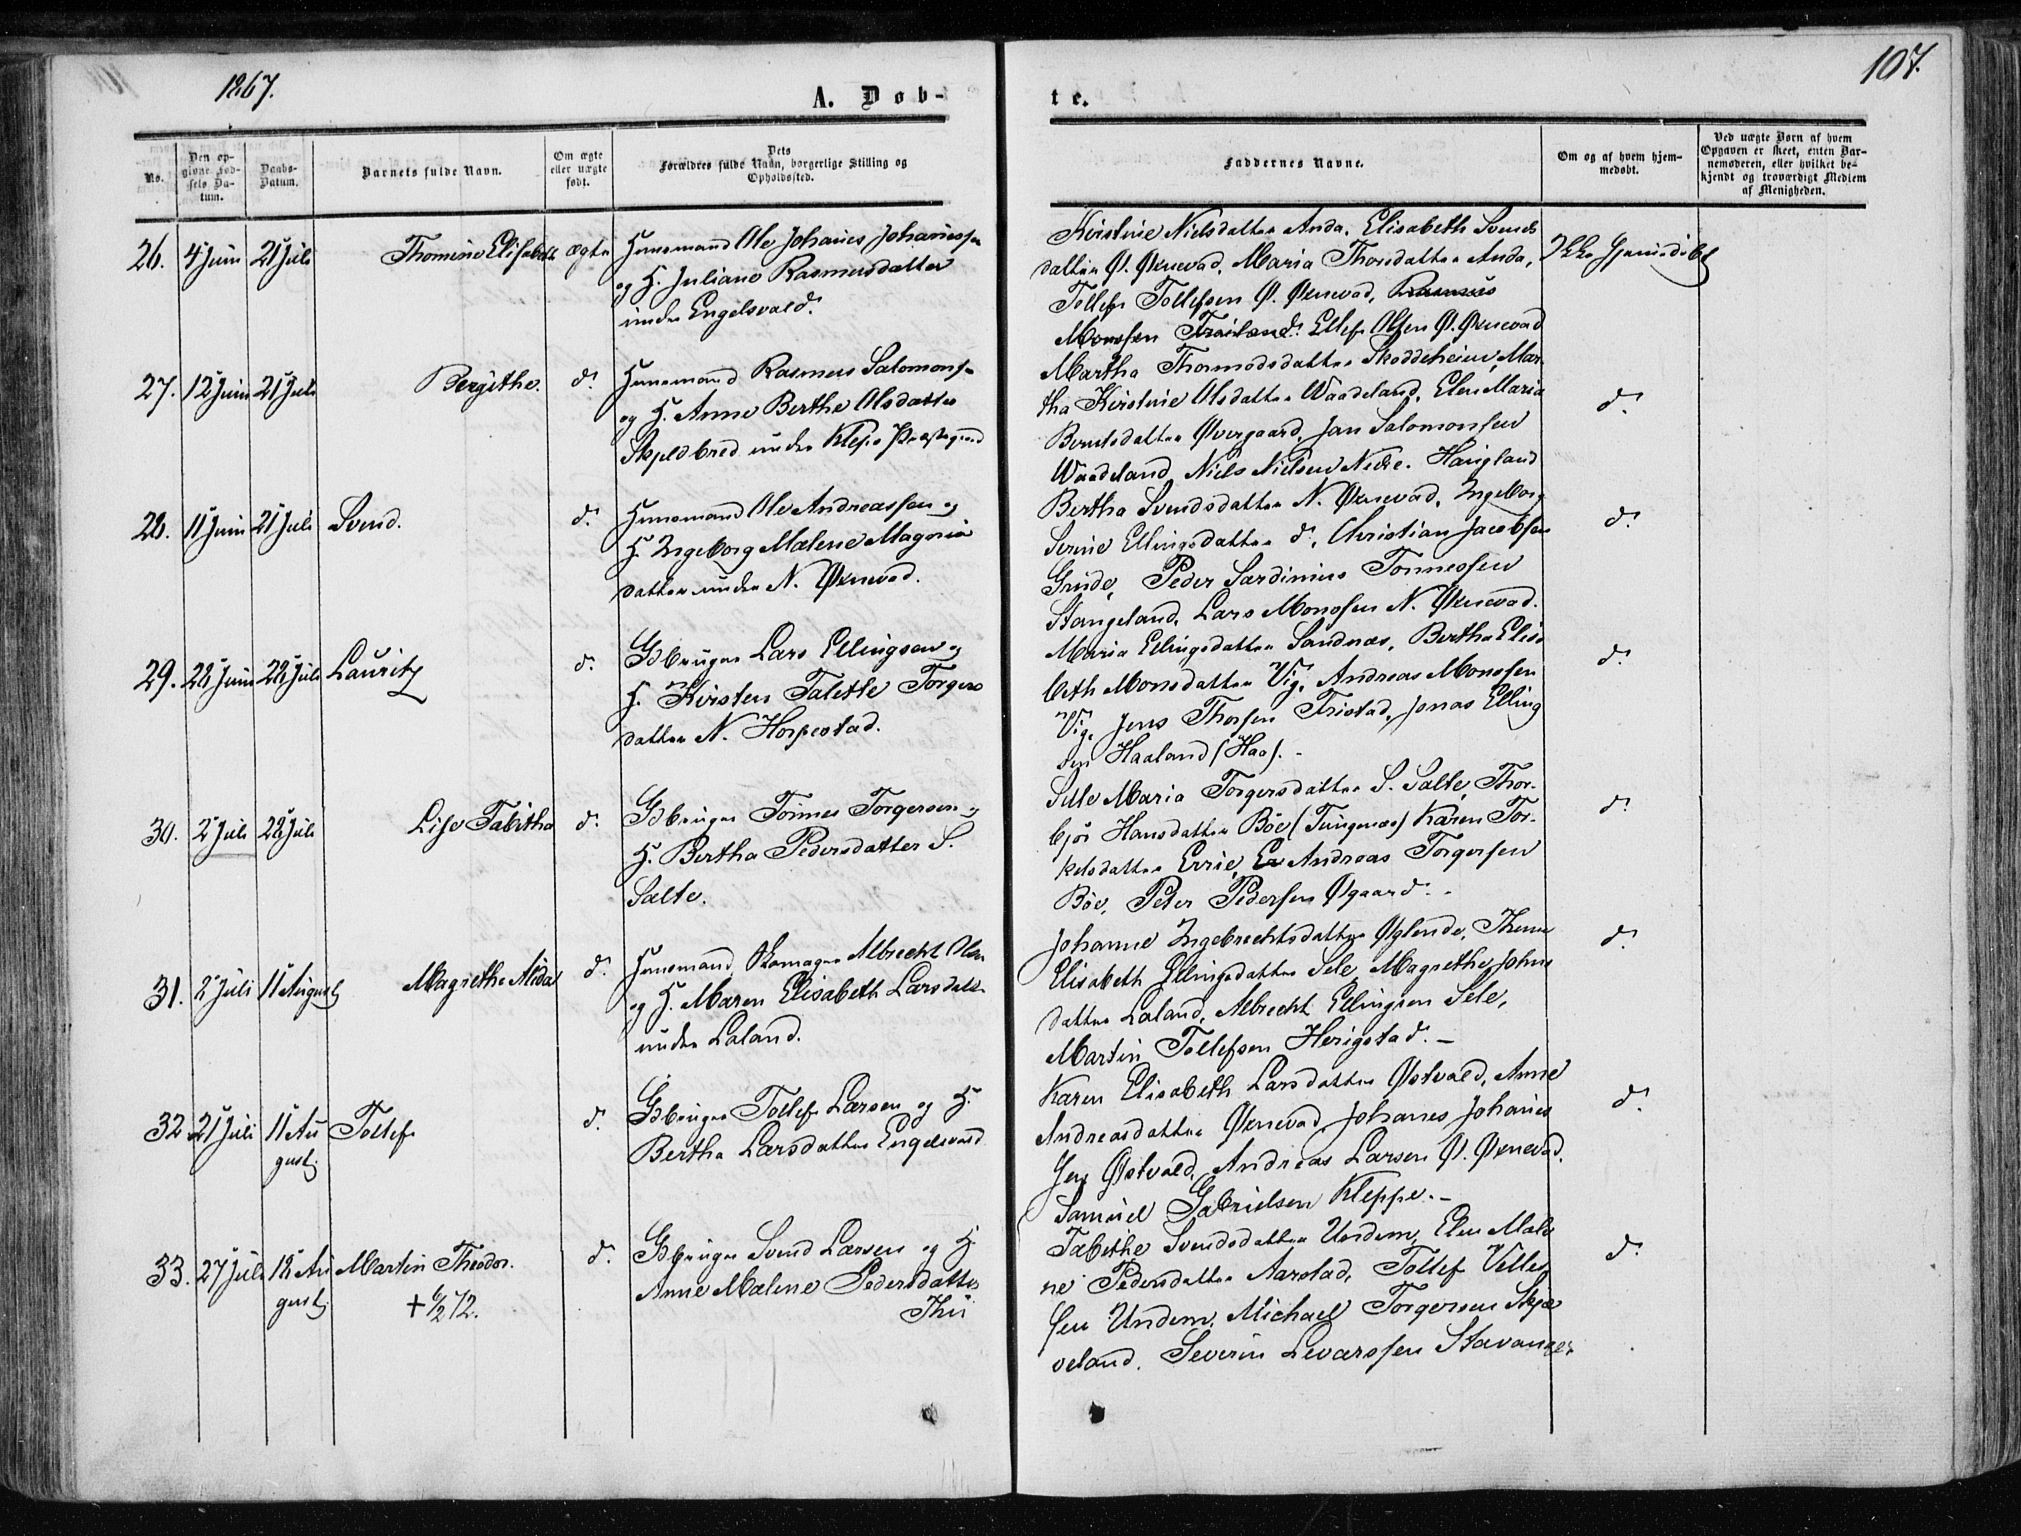 1867.
A. Døb-
te.
107.
No.
Den op-
givne Fød-
sels Da-
tum.
Daabs-
Datum.
Barnets fulde Navn.
Om ægte
eller uægte
født.
Dets
Forældres fulde Navn, borgerlige Stilling og
Opholdssted.
Faddernes Navne.
Om og af hvem hjem-
medøbt.
Ved uægte Børn af hvem
Opgaven er skeet, enten Bar-
nemoderen, eller hvilket be-
kjendt og troværdigt Medlem
af Menigheden.
26. 4 Juni 21 Juli Thomine Elisabeth ægte Huusmand Ole Johannes Johannessen
og H. Juliane Rasmusdatter
under Engelsvold.
Kirstine Nielsdatter Anda, Elisabeth Svends
datter Ø. Øxnevad, Maria Thorsdatter Anda,
Tollef Tollefsen Ø. Øxnevad, Rasmus
Monssen Frøiland. Ellef Olsen Ø. Øxnevad
Ikke hjemmedøbt
27. 12 Juni 21 Juli Bergithe. d. Huusmand Rasmus Salomons.
og H. Anne Berthe Olsdatter
Skjeldbred under Klep Præstegaard
Martha Thormodsdatter Skoddeheien, Mar-
tha Kirstine Olsdatter Waadeland, Elen Maria
Berntsdatter Øvergaard, Jan Salomonsen
Waadeland, Niels Nielsen Nedre. Haugland
d.
28. 11 Juni 21 Juli Svend. d. Huusmand Ole Andreassen og
H. Ingeborg Malene Magrein
datter under N. Øxnevad.
Bertha Svendsdatter N. Øxnevad, Ingeborg
Serine Ellingsdatter d., Christian Jacobsen
Grude, Peder Sardinius Tonnessen
Stangeland, Lars Monssen N. Øxnevad.
d.
29. 28 Juni 28 Juli Lauritz d. Gbruger Lars Ellingsen og
H. Kirsten Talette Torgers
datter N. Horpestad.
Maria Ellingsdatter Sandnæs, Bertha Elisa
beth Monsdatter Vig, Andreas Monssen
Vig, Jens Thorsen Friestad, Jonas Elling
sen Haaland (Haa).-
d.
30. 2 Juli 28 Juli Lise Tabitha d. Gbruger Tønnes Torgersen og
H. Bertha Pedersdatter S.
Salte.
Sille Maria Torgersdatter S. Salte, Thor-
bjør Hansdatter Bøe (Tungenæs) Karen Tor-
kelsdatter Ervie, Andreas Torgersen
Bøe, Peter Pedersen Øgaard.-
d.
31. 2 Juli 11 August Magrethe Alida d. Huusmand, Skomager Albrecht Olsen
og H. Maren Elisabeth Larsdatter
under Laland.
Johanne Ingebrechtsdatter Øglende,
Elisabeth Ellingsdatter Sele, Magrethe Johns
datter Laland, Albrecht Ellingsen Sele,
Martin Tollefsen Herigstad.-
d.
32. 21 Juli 11 Au
gust. Tollef d. Gbruger Tollef Larsen og H.
Bertha Larsdatter Engelsvold
Karen Elisabeth Larsdatter Østvold, Anne
Andreasdatter Øxnevad, Johannes Johannes
sen Østvold, Andreas Larsen Ø. Øxnevad.
Samuel Gabrielsen Kleppe.-
d.
33. 27 Juli 18 Au
gust. Martin Theodor.
+ 6/2 72. d. Gbruger Svend Larsen og H
Anne Malene Pedersdatter
Thu
Tabithe Svendsdatter Undem, Elen Male
ne Pedersdatter Aarstad, Tollef Velles
sen Undem, Michael Torgersen Skjæ
veland, Severin Levarssen Stavanger
d.